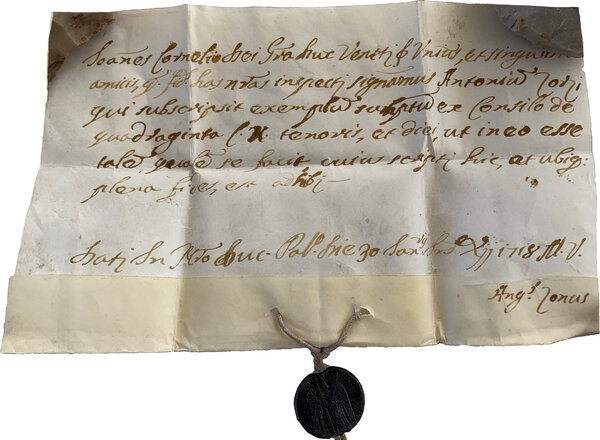 Joanes Cornelio Dei Gra Dux Venetj & Univis, et singulis
amicis, q. fidelibus nris inspectj signamus Antoniu Zorzi
qui subscripsit exemplu scriptu ex Consilo de
quadraginta C. N. tenoris, et dici ut in eo esse
tale, quale se facit cuius scriptj hic, et ubiq:
plena fides, est adhibj
Datj In Nro Duc. Pal. Die 30 Jan.ry Ind.e XII 1718 M. V.
Ang.s Zonus